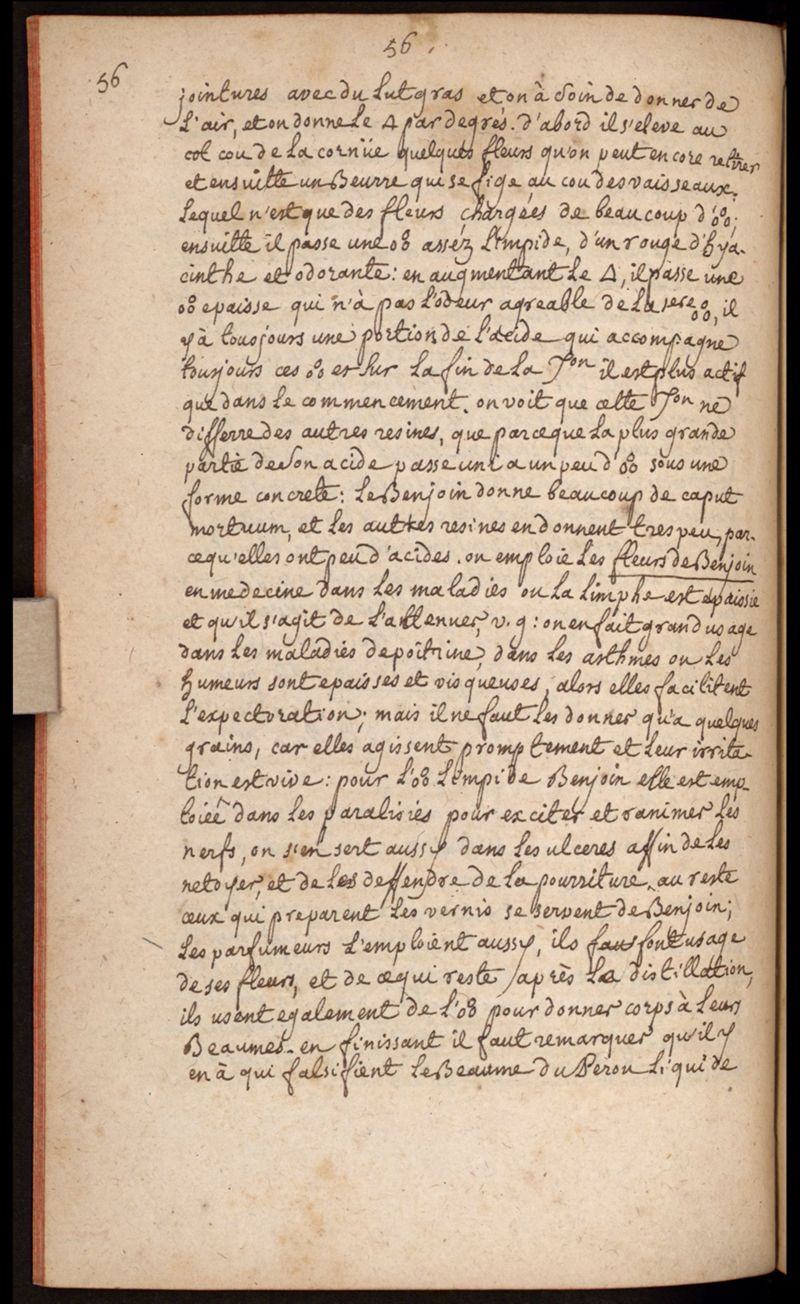 56.
56
jointures avec du lut gras et on à Soin de donner de
l'air, et on donne le △ par degrés. d'abord il s'eleve au
col cou de la cornüe quelques fleurs qu'on peut encore retirer
et ensuitte un Beurre qui se fige au cou des vaisseaux.
lequel n'est que des fleurs chargées de beaucoup d'o%o;
ensuitte il passe une o% asséz limpide, d'un rouge d'hya-
cinthe et odorante: en augmentant le △, il passe une
o% epaisse qui n'à pas l'odeur agreable de la 1ere o%o, il
y à tousjours une portion de l'acide qui accompagne
tousjours ces o% et sur la fin de la on il est plus actif
que dans le commencement. on voit que cette on ne
differre des autres resines, que parceque la plus grande
partie de son acide passe uni a un peu d'o% sous une
forme concrete: le Benjoin donne beaucoup de caput
mortuum, et les autres resines en donnent tres peu, par-
cequ'elles ont peu d'acides. on emploie les fleurs de Benjoin
en medecine dans les maladies ou la limphe est epaissie
et qu'il s'agit de l'attenuer, v. g: on en fait grand usage
dans les maladies de poitrine, dans les asthmes ou les
humeurs sont epaisses et visqueuses, alors elles facilitent
l'expectoration; mais il ne faut les donner qu'a quelques
grains, car elles agissent promptement et leur irrita-
tion est vive: pour l'o% limpide Benjoin elle est emp-
loieé dans les paralisiés pour exciter et ranimer les
nerfs, on s'en sert aussy dans les ulceres affin de les
netoyer, et de les deffendre de la pourriture. au reste
ceux qui preparent les vernis se servent de Benjoin;
les parfumeurs l'emploient aussy, ils font usage
de ses fleurs, et de ce qui reste après la distillation,
ils usent egalement de l'o% pour donner corps à leurs
Beaumes. en finissant il faut remarquer qu'il y
en à qui falsifient le Beaume du Perou liquide